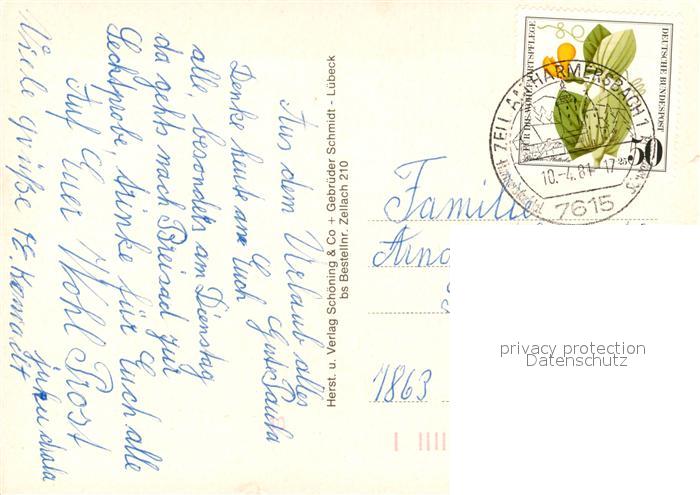 Aus dem Urlaub alles
Gute
Denke heute an Euch
alle, besonders am Dienstag
da gehts nach Breisach zur
Sechtprobe, trinke für Euch alle
Auf Euer Wohl Prost
Viele Grüße
Herst. u. Verlag Schöning & Co + Gebrüder Schmidt - Lübeck
bs Bestellnr. Zellach 210
FÜR DIE WOHLFAHRTSPFLEGE
DEUTSCHE BUNDESPOST
50
+25
ZELL A. HARMERSBACH 1
10.-4.81-17
7615
Familie
7863
privacy protection
Datenschutz